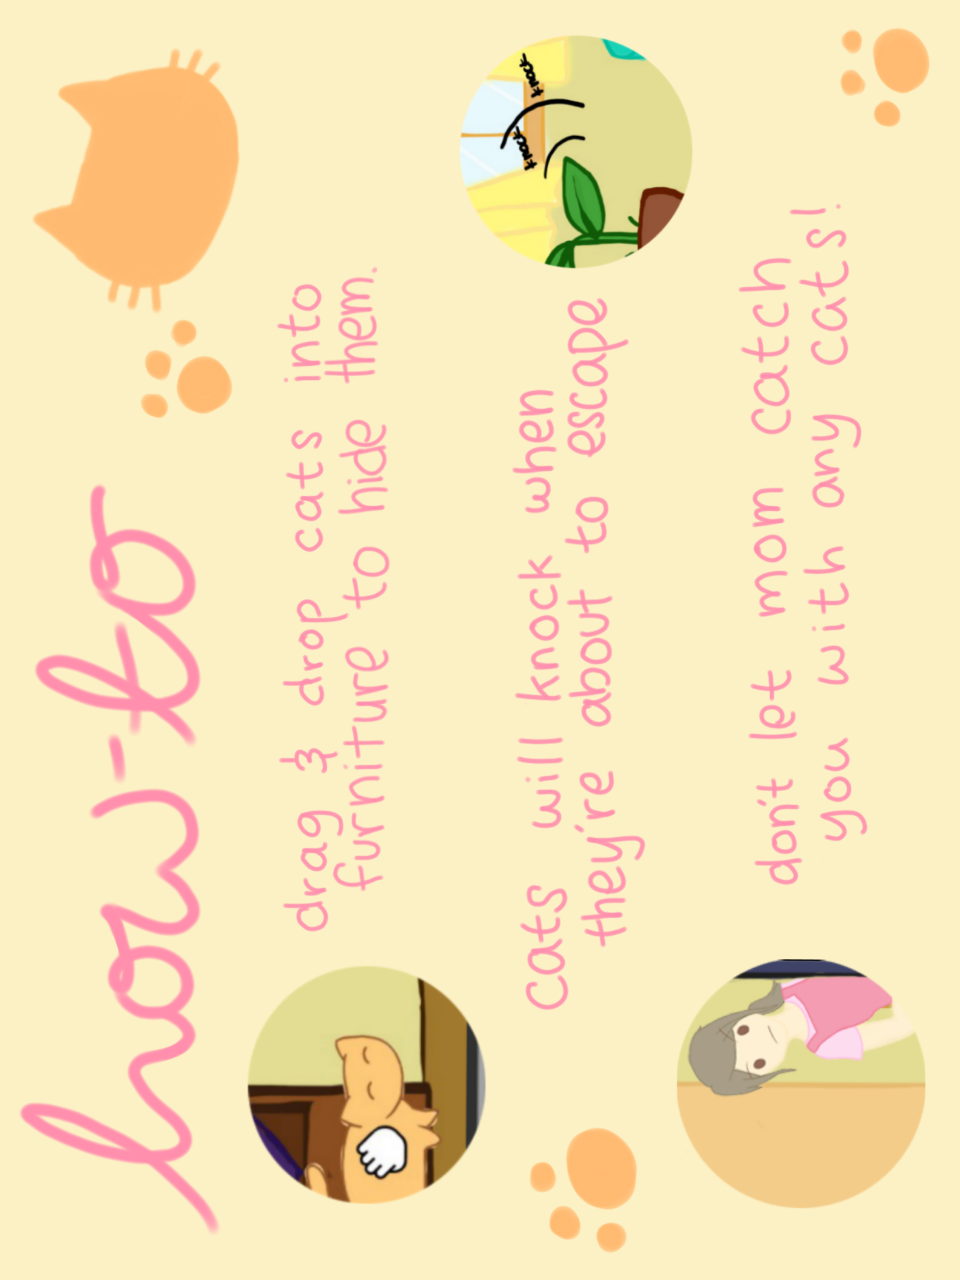 how-to
drag & drop cats into
furniture to hide them.
knock
knock
cats will knock when
they're about to escape
don't let mom catch
you with any cats!